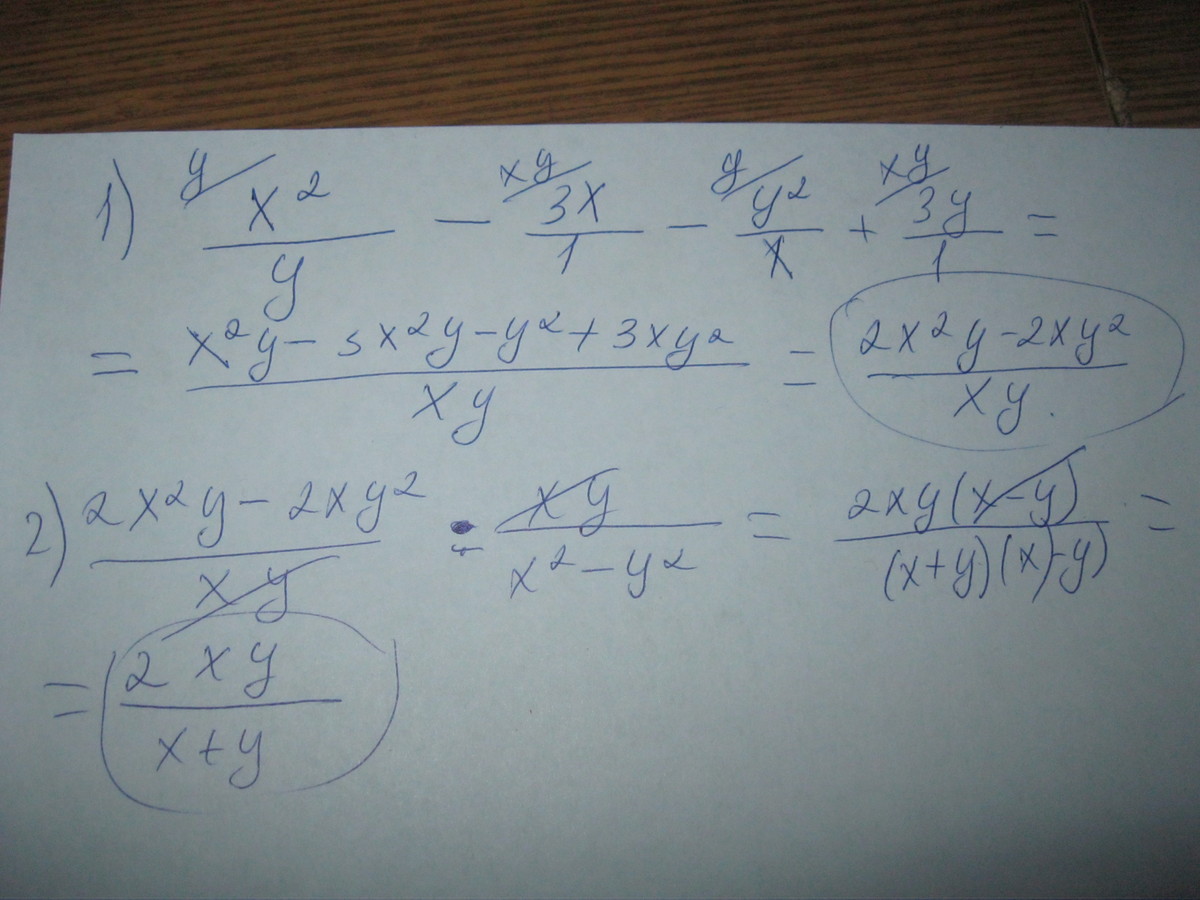 1) y/ x²/y - xy/ 3x/1 - y/ y²/x + xy/ 3y/1 =
= (x²y - 3x²y - y² + 3xy²)/(xy) = (2x²y - 2xy²)/(xy).
2) (2x²y - 2xy²)/(xy) · (xy)/(x² - y²) = (2xy(x-y))/((x+y)(x-y)) =
= (2xy)/(x+y)